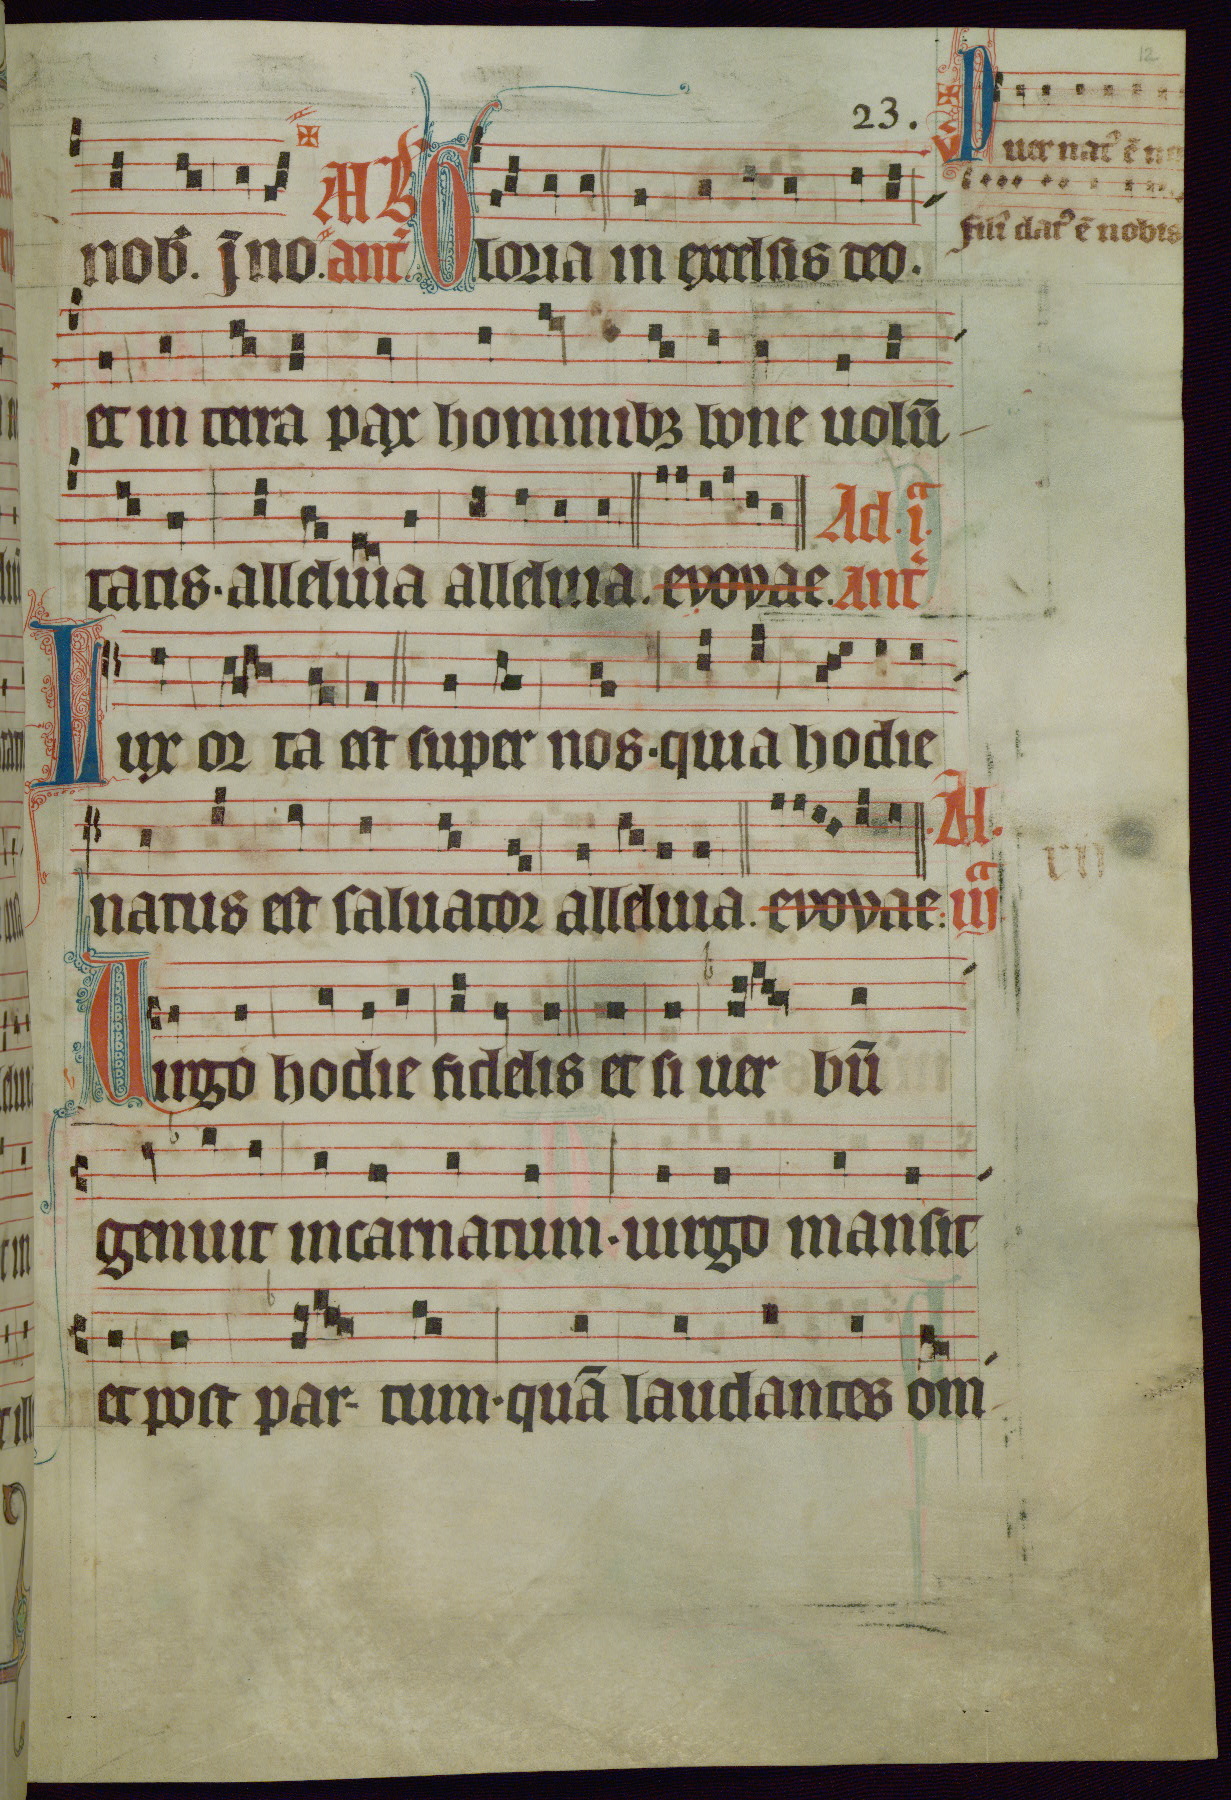 12
23.
Puer nat᷒ ē no
filī dat᷒ ē nobis
nob̄. j̄no. ant̄ Gloria in excelsis deo.
et in terra pax hominibꝫ bone uolū
tatis. alleluia alleluia. evovae. Ad. i. Ant̄
Lux orta est super nos. quia hodie
natus est saluator alleluia. evovae: Ad. iij
Uirgo hodie fidelis et si uer bū
genuit incarnatum. uirgo mansit
et post par- tum. quā laudantes om